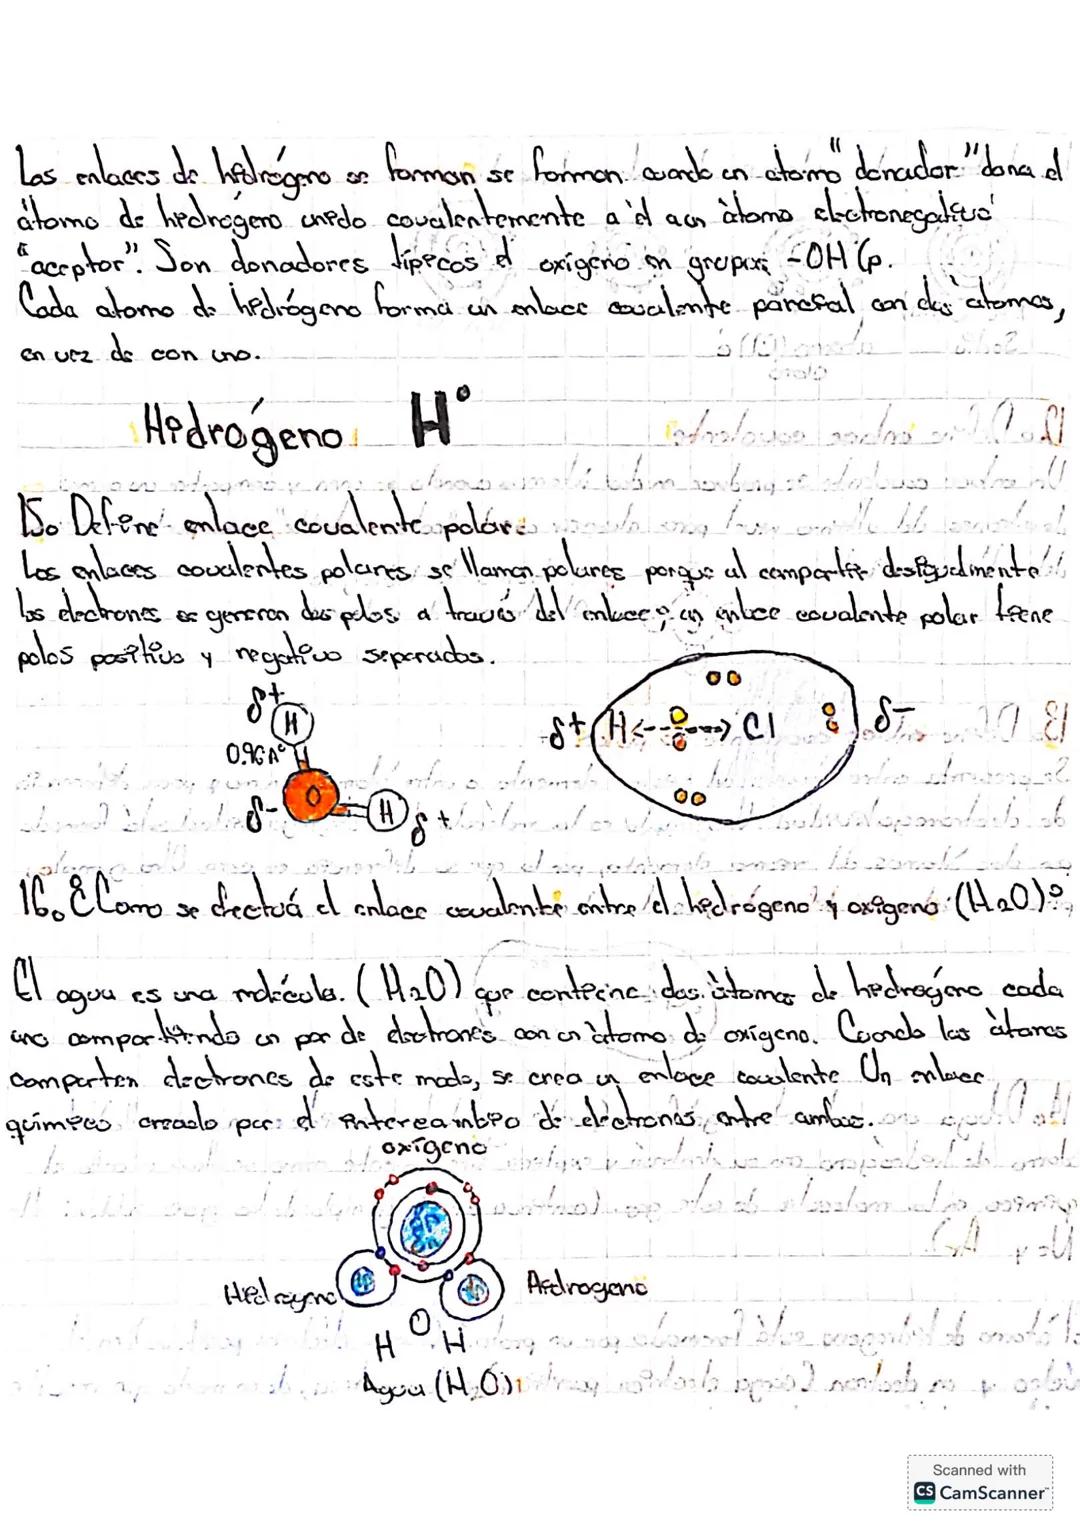 Los enlaces de hidrógeno se forman se forman cuando un átomo "donador" dona el
átomo de hidrógeno unido covalentemente a él a un átomo electronegativo
"aceptor". Son donadores típicos el oxígeno en grupos -OH (p.
Cada atomo de hidrógeno forma un enlace covalente parcial con dos átomos,
en vez de con uno.
Hidrógeno H°
15. Define enlace covalente polar:
Los enlaces covalentes polares se llaman polares porque al compartir desigualmente
los electrones se generan dos polos a través del enlace; un enlace covalente polar tiene
polos positivo y negativo separados.
δ+
H
0.96A°
O
δ-
H
δ+
δ+ H Cl δ-
16. ¿Como se efectuá el enlace covalente entre el hidrógeno y oxígeno (H2O)?
El agua es una molécula. (H2O) que contiene dos átomos de hidrógeno cada
uno compartiendo un par de electrones con un átomo de oxígeno. Cuando los átomos
comparten electrones de este modo, se crea un enlace covalente Un enlace
químico creado por el intercambio de electrones entre ambos.
oxígeno
Hidrogeno
Hidrogeno
H O H
Agua (H2O)
Scanned with
CS CamScanner